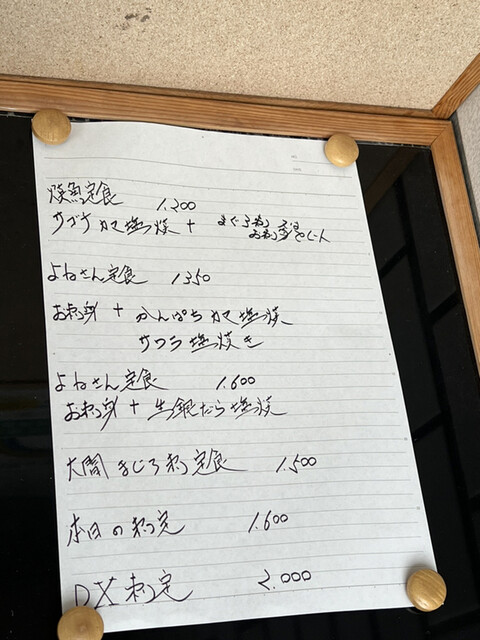 焼魚定食 1.200
サゴチ カマ塩焼 + まぐろ
お刺身
よねさん定食 1350
お刺身 + かんぱちカマ塩焼
サワラ塩焼き
よねさん定食 1.600
お刺身 + 生銀だら塩焼
大間まぐろ刺定食 1.500
本日の刺定 1.600
DX刺定 2.000